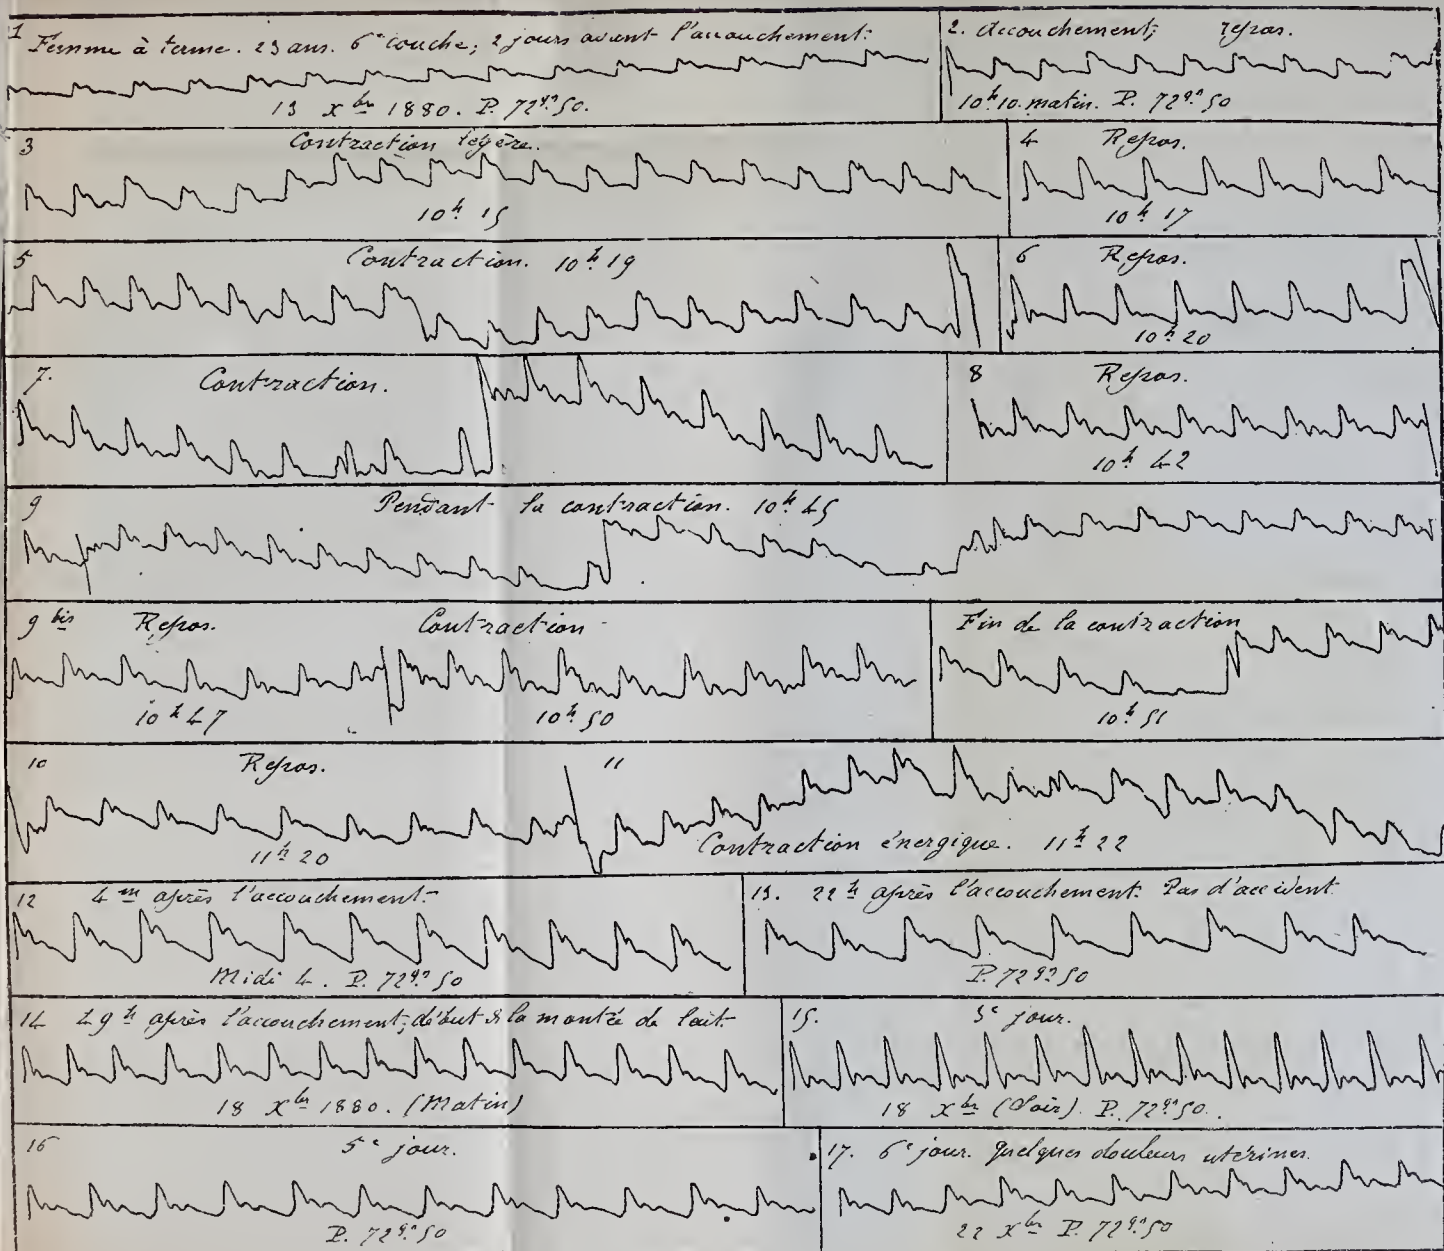 1 Femme à terme. 23 ans. 6e couche; 2 jours avant l'accouchement.
13 Xbre 1880. P. 72gr 50.
2. Accouchement; repos.
10h 10. matin. P. 72gr 50
3 Contraction légère.
10h 15
4 Repos.
10h 17
5 Contraction. 10h 19
6 Repos.
10h 20
7. Contraction.
8 Repos.
10h 42
9 Pendant la contraction. 10h 45
9 bis Repos. Contraction
10h 47 10h 50
Fin de la contraction
10h 51
10 Repos.
11h 20
11
Contraction énergique. 11h 22
12 4m après l'accouchement.
Midi 4. P. 72gr 50
13. 22h après l'accouchement. Pas d'accident
P. 72gr 50
14 49h après l'accouchement; début de la montée de lait.
18 Xbre 1880. (Matin)
15. 3e jour.
18 Xbre (Soir). P. 72gr 50.
16 5e jour.
P. 72gr 50
17. 6e jour. quelques douleurs utérines.
22 Xbre P. 72gr 50